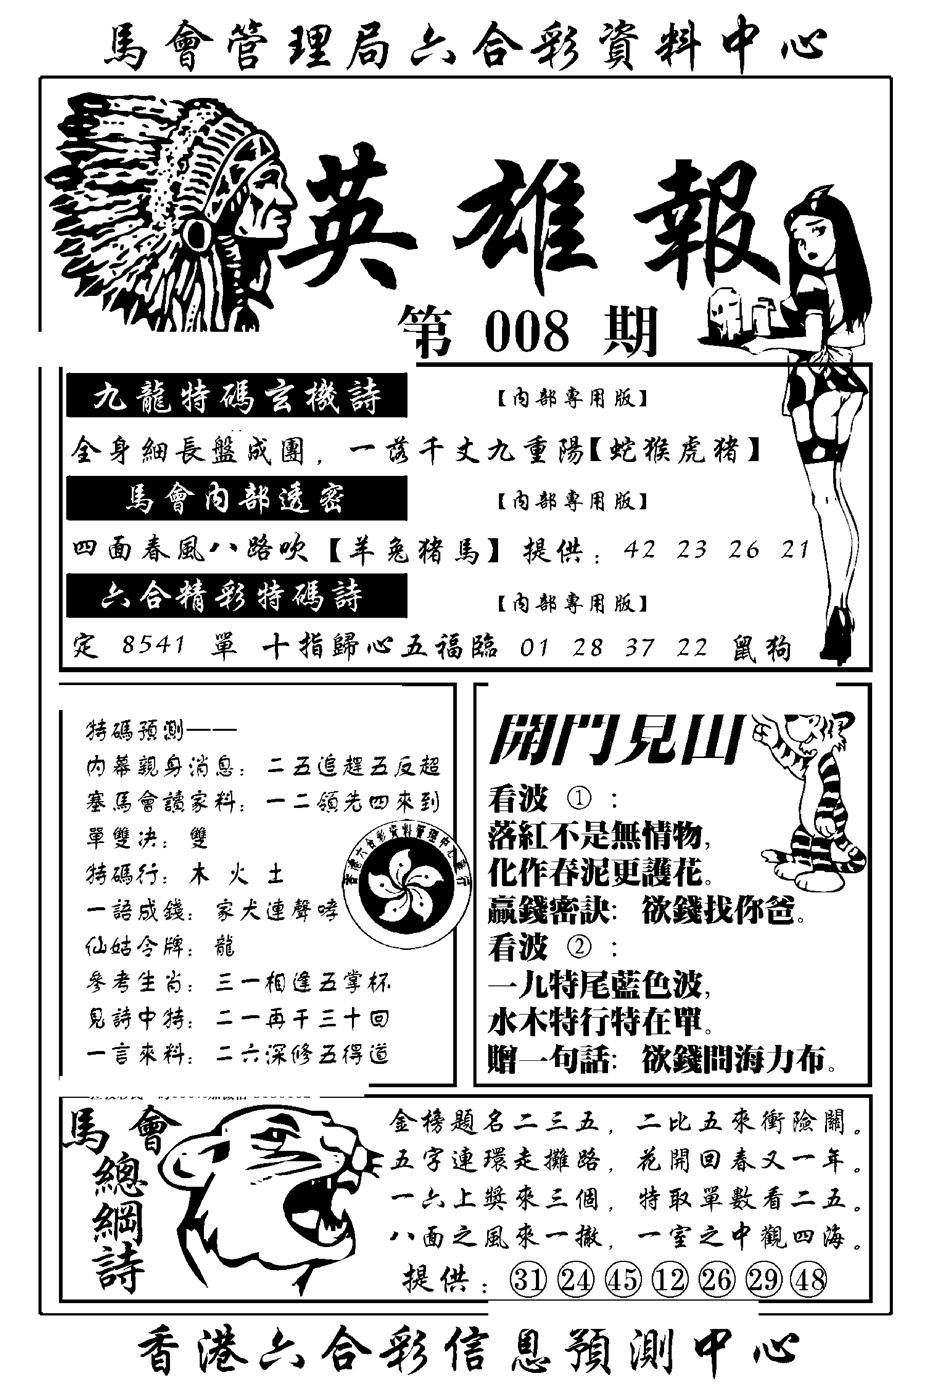 馬會管理局六合彩資料中心
英雄報
第 008 期
九龍特碼玄機詩 【內部專用版】
全身細長盤成團，一落千丈九重陽【蛇猴虎豬】
馬會內部透密 【內部專用版】
四面春風八路吹【羊兔豬馬】提供：42 23 26 21
六合精彩特碼詩 【內部專用版】
定 8541 單 十指歸心五福臨 01 28 37 22 鼠狗
特碼預測——
內幕親身消息：二五追趕五反超
塞馬會讀家料：一二領先四來到
單雙決：雙
特碼行：木 火 土
一語成錢：家犬連聲哮
仙姑令牌：龍
參考生肖：三一相逢五掌杯
見詩中特：二一再干三十回
一言來料：二六深修五得道
開門見山
看波 ①：
落紅不是無情物，
化作春泥更護花。
贏錢密訣：欲錢找你爸。
看波 ②：
一九特尾藍色波，
水木特行特在單。
贈一句話：欲錢問海力布。
馬會
總綱詩
金榜題名二三五，二比五來衝險關。
五字連環走攤路，花開回春又一年。
一六上獎來三個，特取單數看二五。
八面之風來一撤，一室之中觀四海。
提供：㉛ ㉔ ㊺ ⑫ ㉖ ㉙ ㊽
香港六合彩信息預測中心